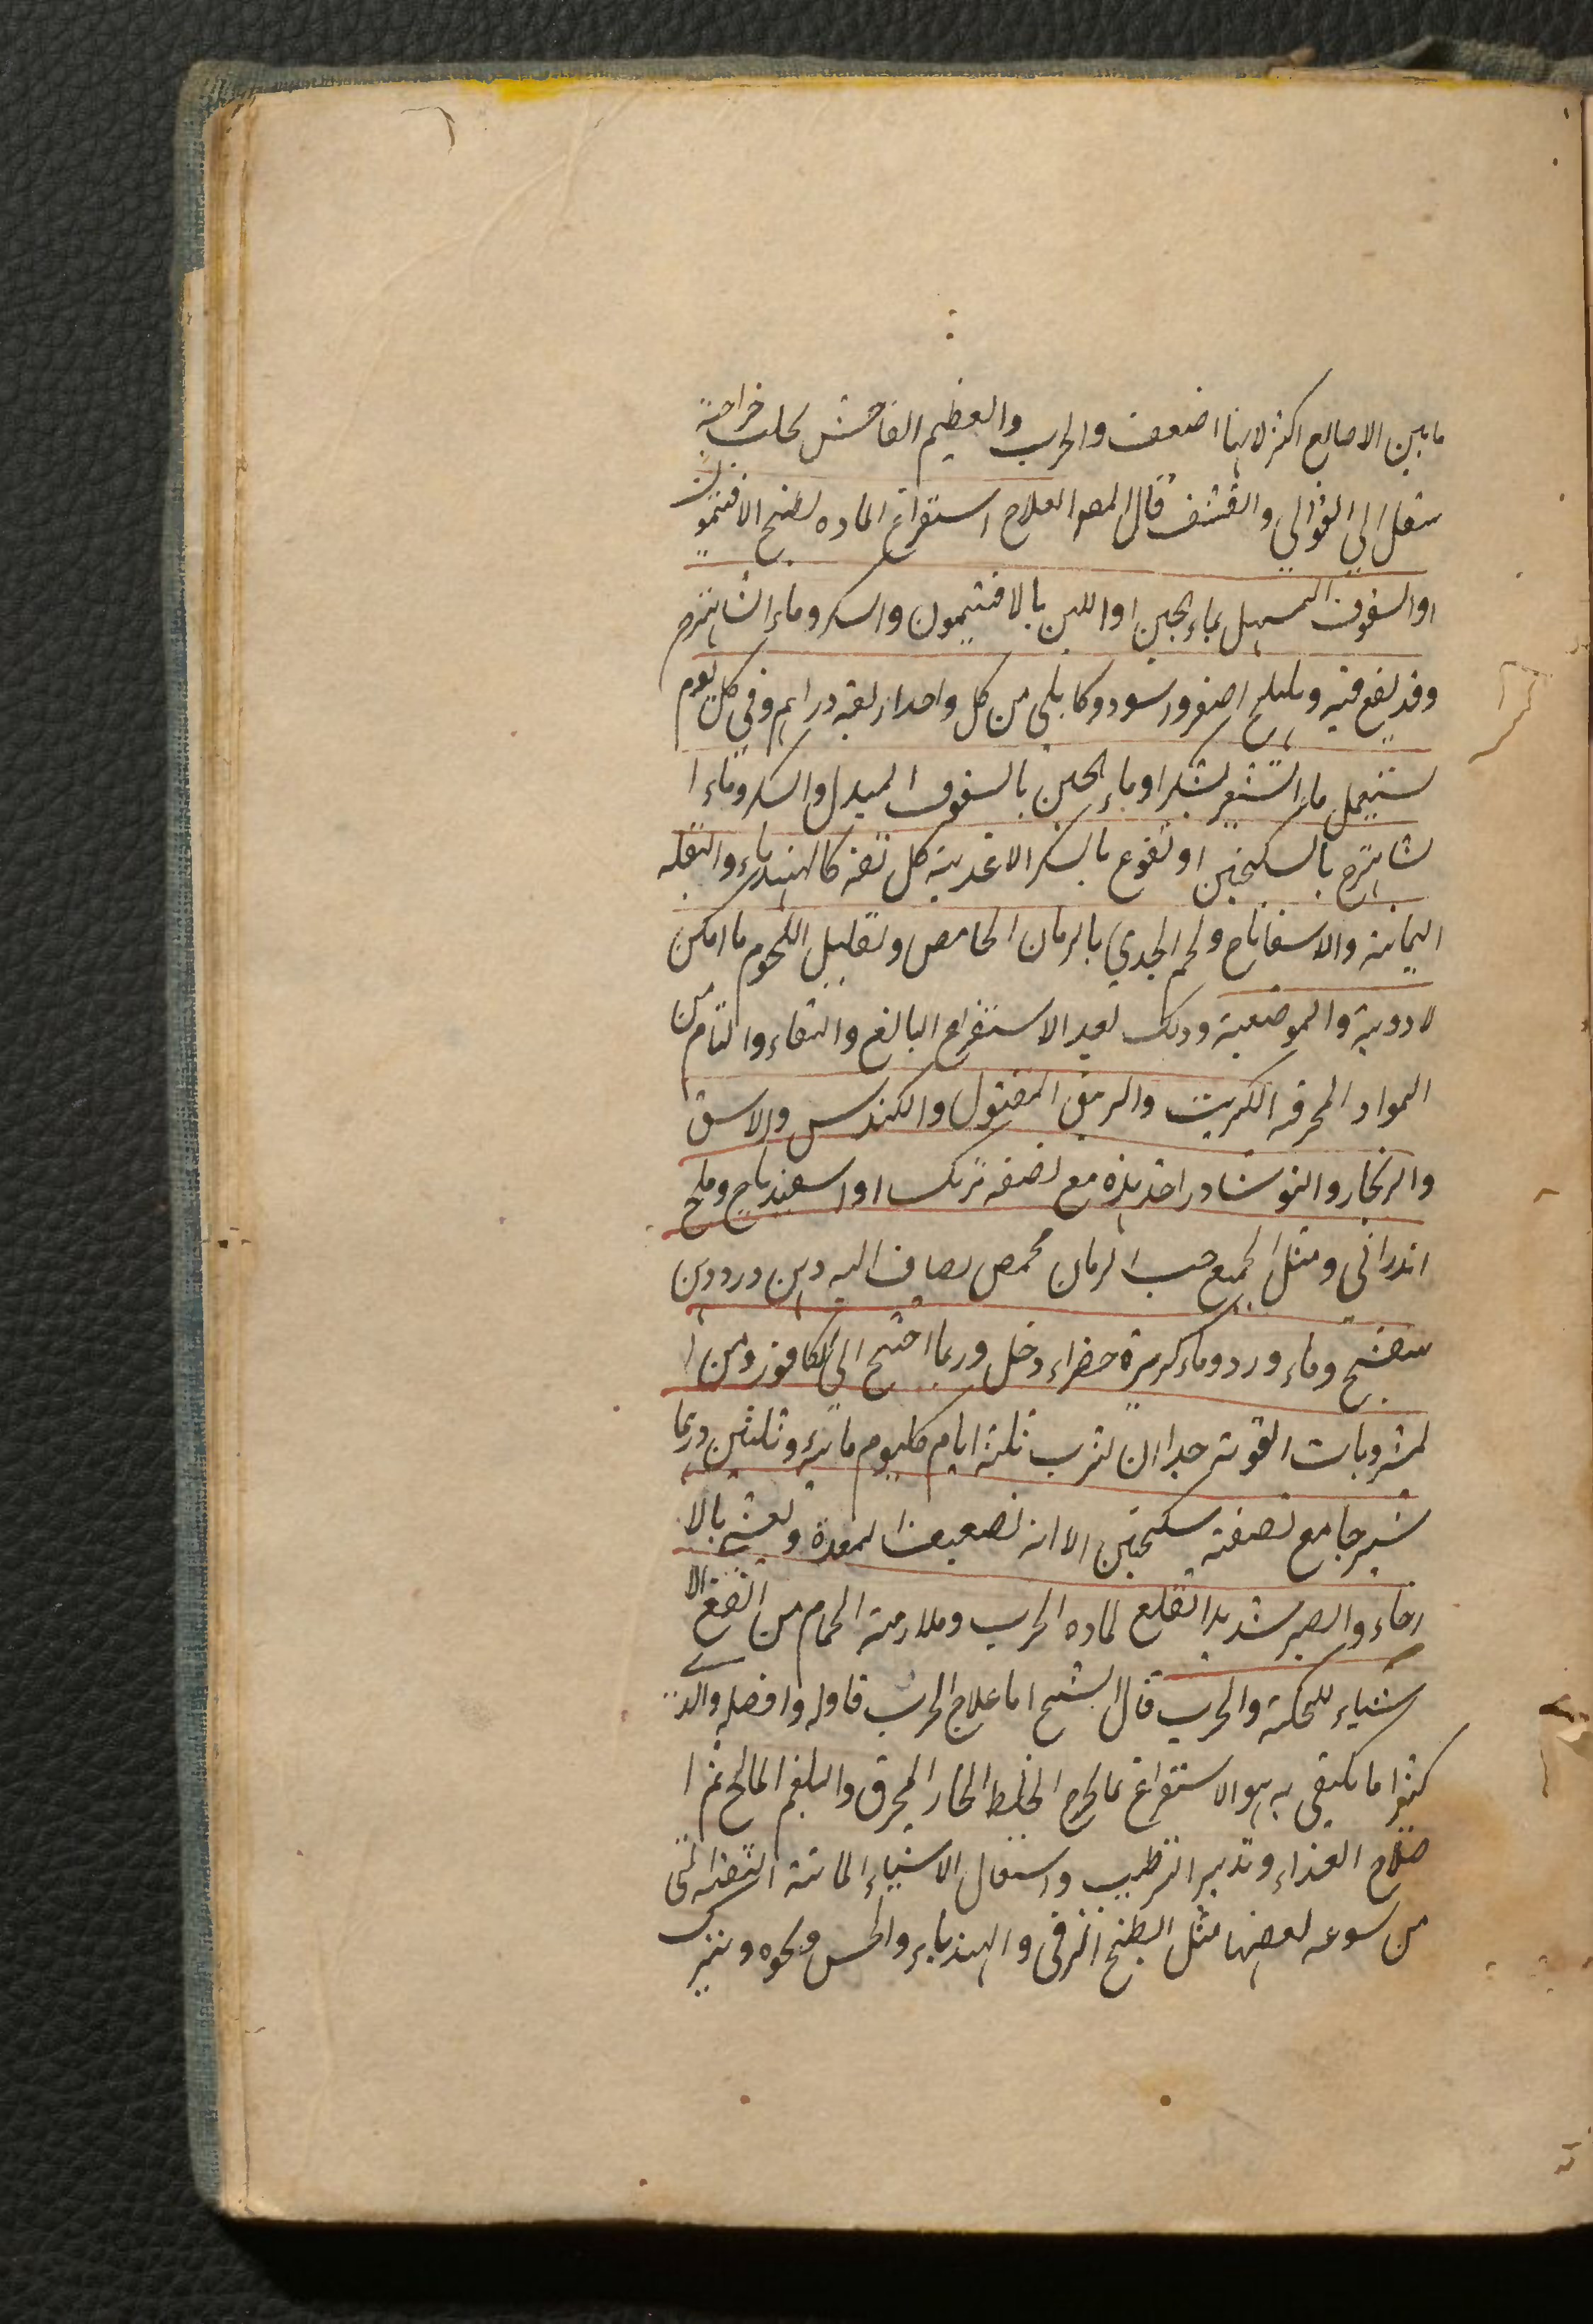 ما بين الاصابع اكثر لانها اضعف والجرب والعظيم الفاحش لحلب خراجه
ينتقل الي القوابي والقشف قال المص العلاج استفراغ الماده بطبخ الافتيمون
او السفوف المسهل بماء الجبن او اللبن بالافتيمون والسكر وماء الشاهترج
وقد نقع فيه وهليلج اصفر واسود وكابلي من كل واحد اربعة دراهم وفي كل يوم
يستعمل ماء الشعير بسكر او ماء الجبن بالسفوف المبدل والسكر وماء ا
لشاهترج بالسكنجبين او نقوع بالسكر الاغذية كل تفه كالهندباء والبقلة
اليمانية والاسفاناخ ولحم الجدي بالرمان الحامض وتقليل اللحوم ما امكن
لادوية والموضعية وذلك بعد الاستفراغ البالغ والنقاء والتام من
المواد المحرقه الكبريت والزيبق المقتول والكندس والاشق
والزنجار والنوشادر احد هذه مع نصفه مرتك او اسفيداج وملح
اندراني ومثل الجميع حب الرمان محمص يضاف اليه دهن ورد ودهن
بنفسج وماء ورد وماء كزبرة خضراء وخل وربما احتيج الي الكافور ومن ا
لمشروبات القوية جدا ان يشرب ثلثة ايام كليوم مائة وثلثين درهما
شيرجا مع نصفه سكنجبين الا انه تضعيف المعدة و بالا
رخاء والصبر شديد القلع لماده الجرب وملازمة الحمام من انفع الا
شياء للحكة والجرب قال الشيخ اما علاج الجرب فاوله وافضله والذي
كثيرا ما يكتفي به هو الاستفراغ بما يخرج الخلط الحار المحرق والبلغم المالح ثم ا
صلاح الغذاء وتدبير الترطيب واستعمال الاشياء المائية التفهه التي
من سوعه بعضها مثل البطيخ الرقي والهندباء والخس ونحوه ويترك